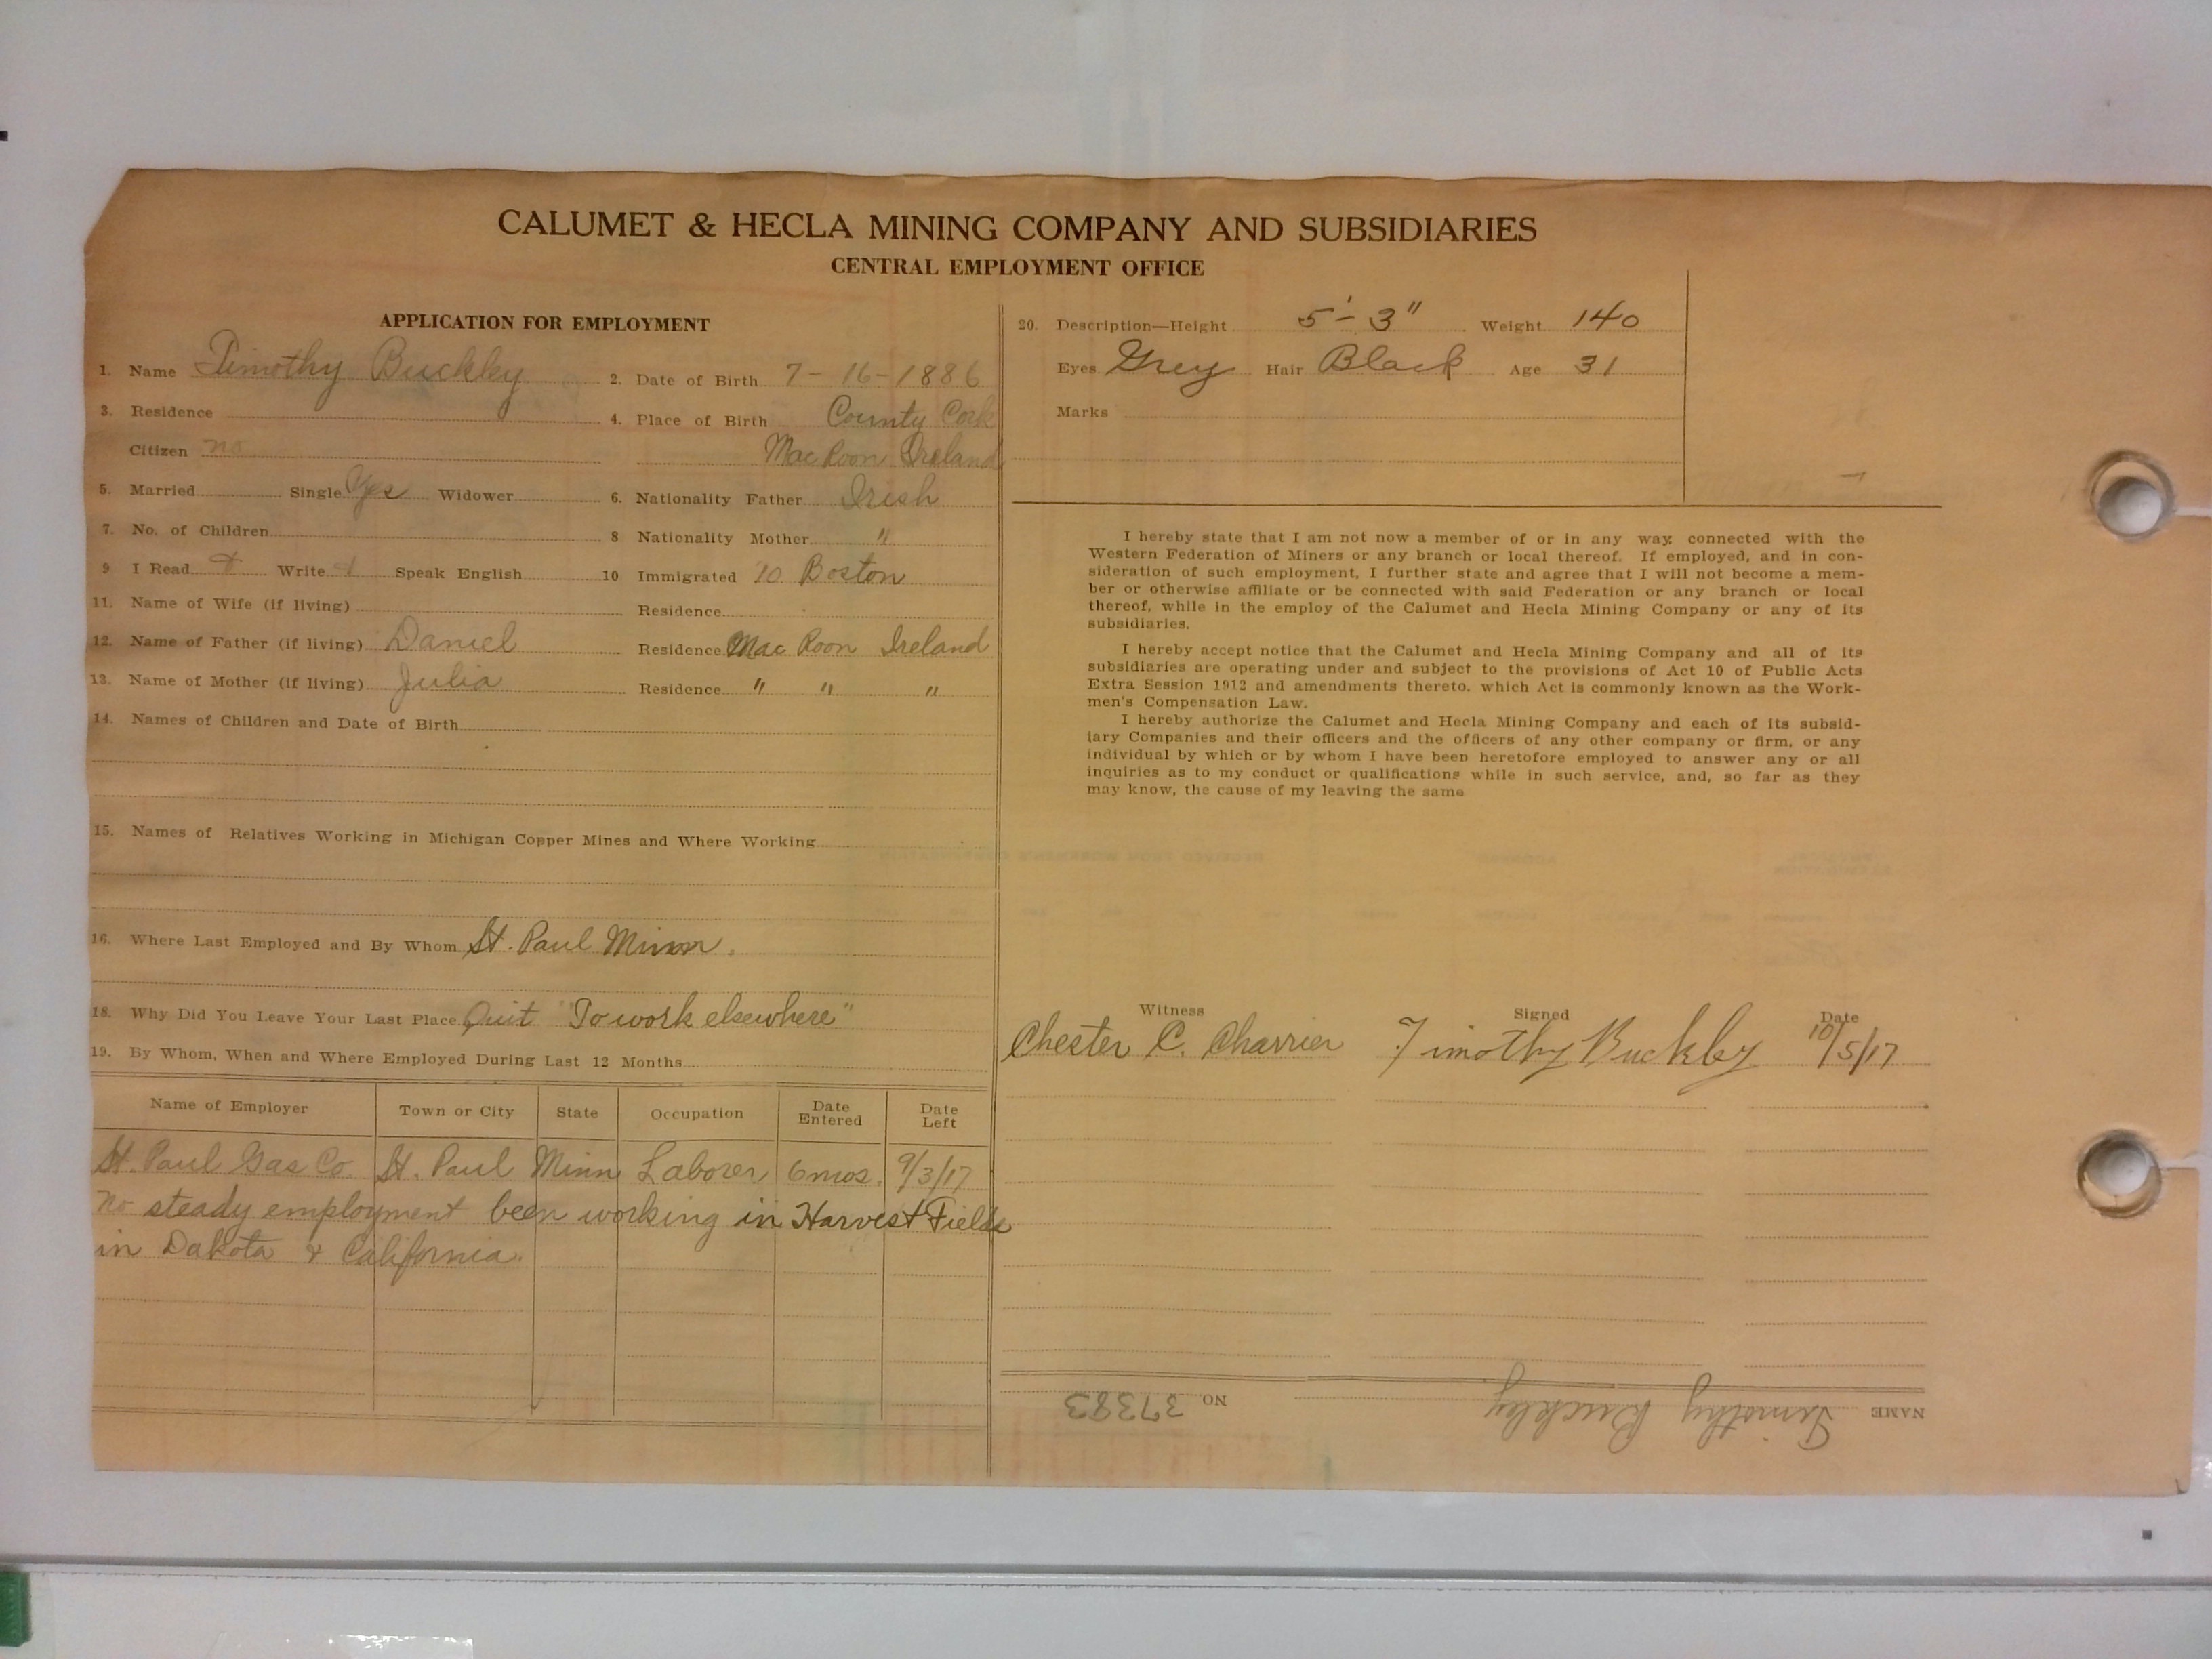 CALUMET & HECLA MINING COMPANY AND SUBSIDIARIES
CENTRAL EMPLOYMENT OFFICE
APPLICATION FOR EMPLOYMENT
1. Name Timothy Buckley 2. Date of Birth 7-16-1886
3. Residence 4. Place of Birth County Cork
Citizen no MacRoon Ireland
5. Married Single Yes Widower 6. Nationality Father Irish
7. No. of Children 8 Nationality Mother "
9 I Read Write Speak English 10 Immigrated 10 Boston
11. Name of Wife (if living) Residence
12. Name of Father (if living) Daniel Residence Mac Roon Ireland
13. Name of Mother (if living) Julia Residence " " "
14. Names of Children and Date of Birth
15. Names of Relatives Working in Michigan Copper Mines and Where Working
16. Where Last Employed and By Whom St. Paul Minn.
18. Why Did You Leave Your Last Place Quit "To work elsewhere"
19. By Whom, When and Where Employed During Last 12 Months
Name of Employer Town or City State Occupation Date Entered Date Left
St. Paul Gas Co St. Paul Minn Laborer 6 mos. 9/3/17
No steady employment been working in Harvest Fields
in Dakota & California.
20. Description—Height 5'-3" Weight 140
Eyes Grey Hair Black Age 31
Marks
I hereby state that I am not now a member of or in any way connected with the
Western Federation of Miners or any branch or local thereof. If employed, and in con-
sideration of such employment, I further state and agree that I will not become a mem-
ber or otherwise affiliate or be connected with said Federation or any branch or local
thereof, while in the employ of the Calumet and Hecla Mining Company or any of its
subsidiaries.
I hereby accept notice that the Calumet and Hecla Mining Company and all of its
subsidiaries are operating under and subject to the provisions of Act 10 of Public Acts
Extra Session 1912 and amendments thereto. which Act is commonly known as the Work-
men's Compensation Law.
I hereby authorize the Calumet and Hecla Mining Company and each of its subsid-
iary Companies and their officers and the officers of any other company or firm, or any
individual by which or by whom I have been heretofore employed to answer any or all
inquiries as to my conduct or qualifications while in such service, and, so far as they
may know, the cause of my leaving the same
Witness Signed Date
Chester C. Charrier Timothy Buckley 10/5/17
NAME Timothy Buckley NO 37383